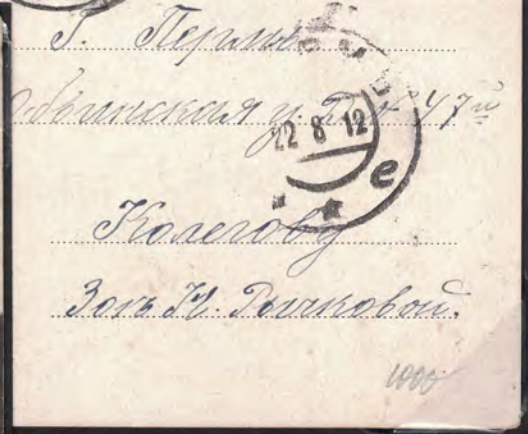 Г. Пермь
Обвинская у. Д. № 47й
22 8 12
е
Колегову
Н. Рычковой.
1000